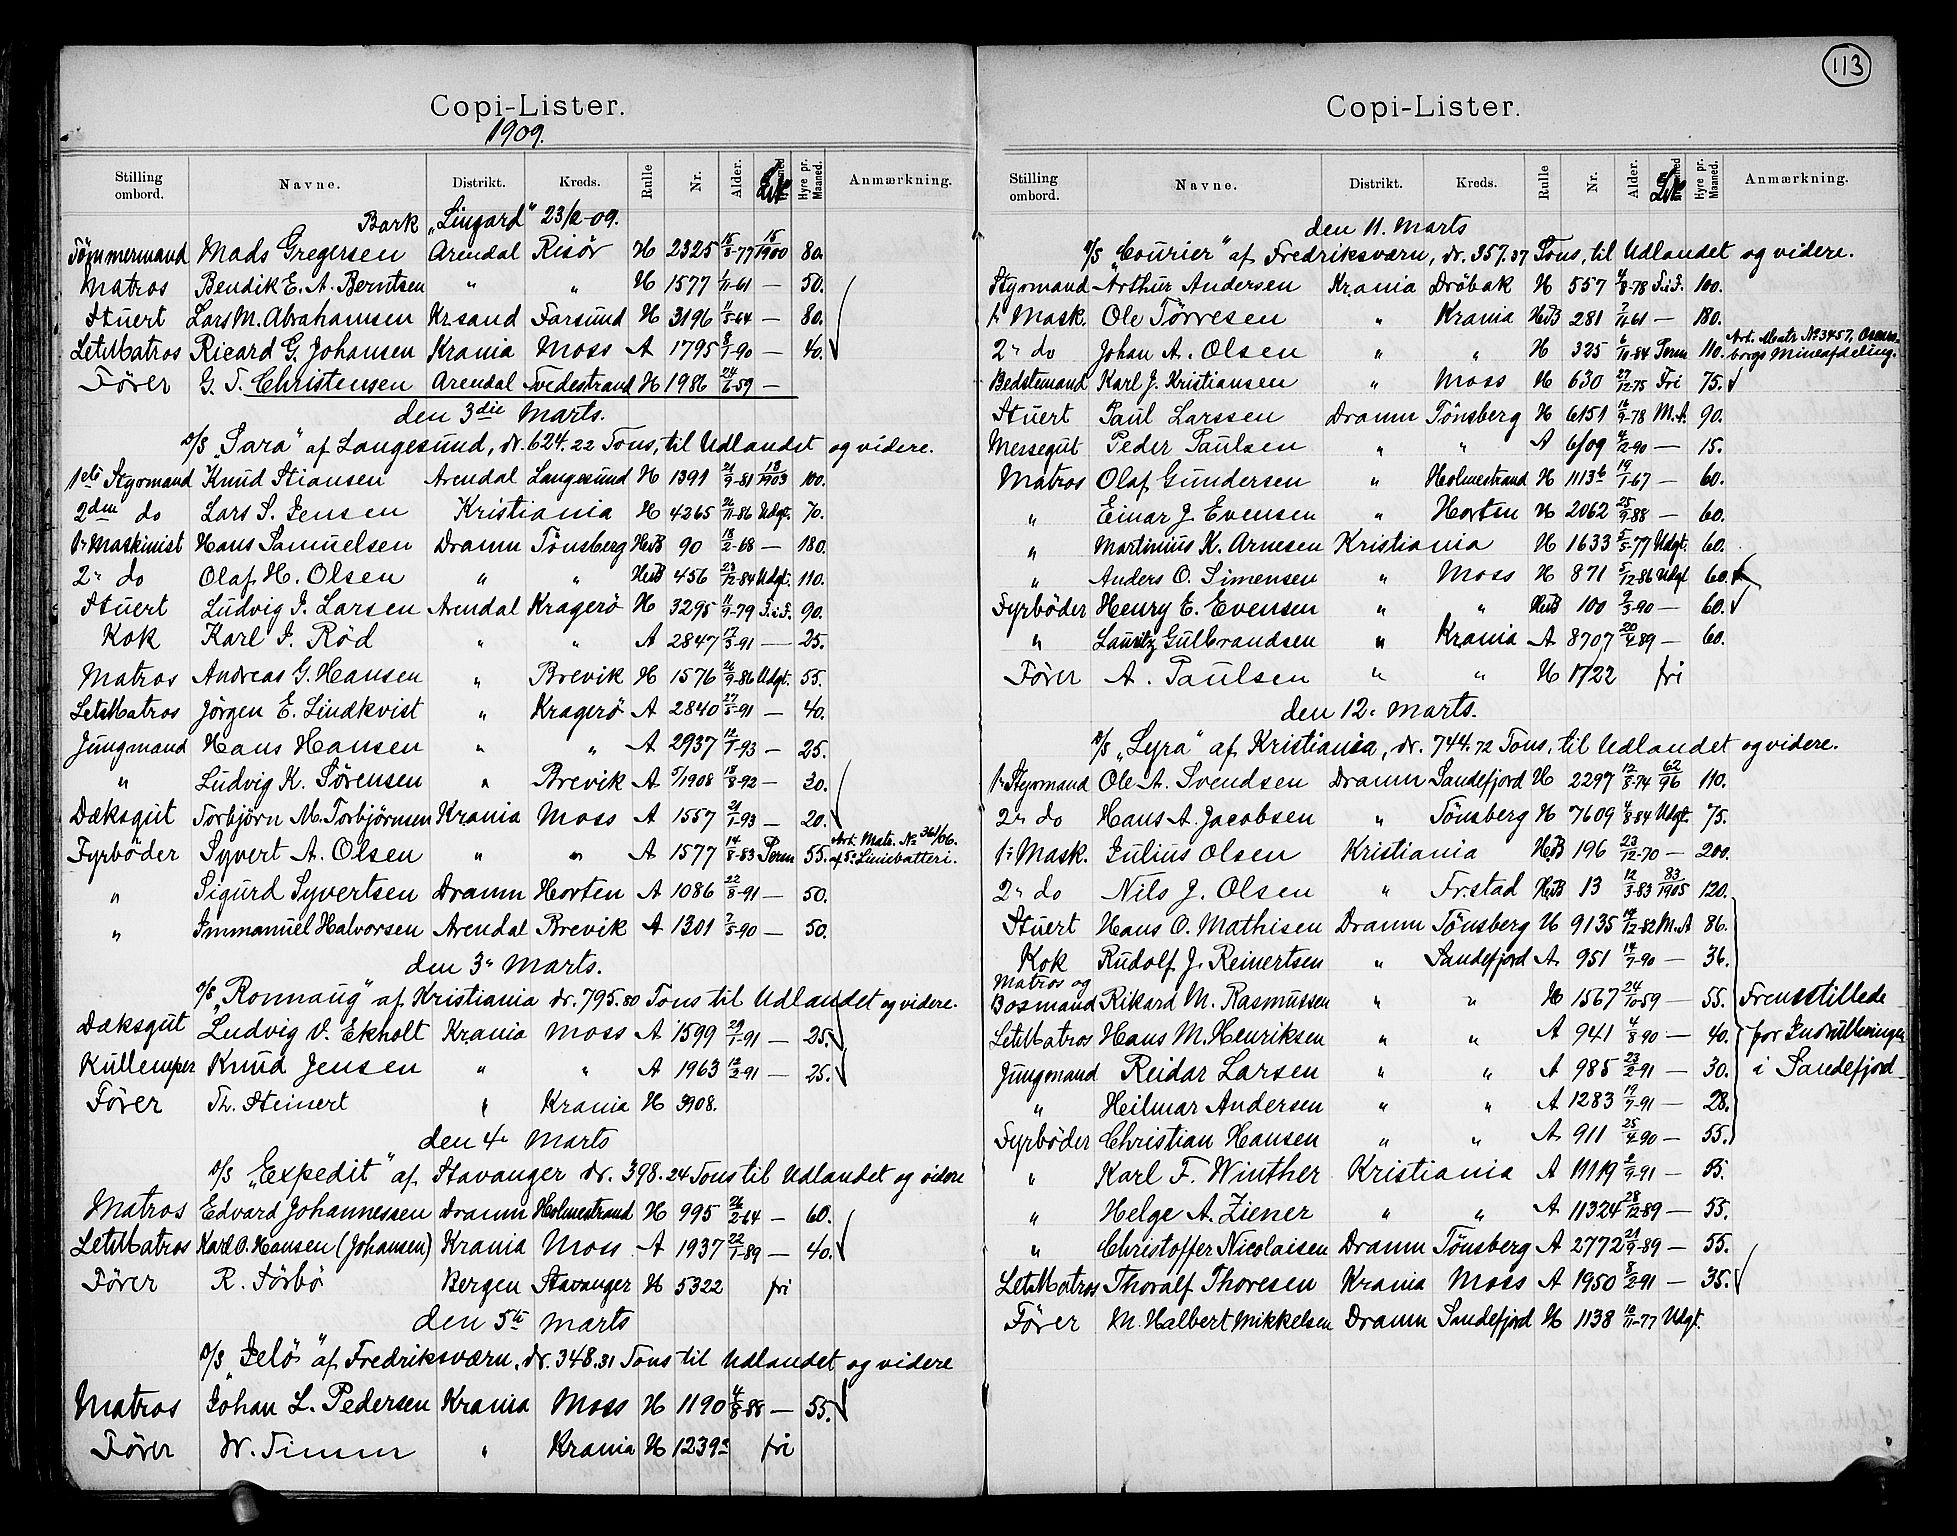 Copi-Lister.
1909.
Stilling ombord. Navne. Distrikt. Kreds. Rulle Nr. Alder. Hyre pr. Maaned. Anmærkning.
Bark „Lingard" 23/2-09.
Tömmermand Mads Gregersen Arendal Risör H 2325 15/8-77 15/1900 80.
Matros Bendik E. A. Berntsen " " H 1577 1/11-61 — 50.
Stuert Lars M. Abrahamsen Kr.sand Farsund H 3196 11/5-64 — 80.
LetMatros Ricard G. Johansen Krania Moss A 1795 8/1-90 — 40.
Förer G. T. Christensen Arendal Tvedestrand H 1986 24/6-59 —
den 3die Marts.
D/S „Sara" af Langesund, dr. 624.22 Tons, til Udlandet og videre.
1ste Styrmand Knud Stiansen Arendal Langesund H 1391 21/9-81 13/1903 100.
2den do Lars S. Jensen Kristiania H 4265 26/11-86 Udgt. 70.
1' Maskinist Hans Samuelsen Dramn Tönsberg HuB 90 18/2-68 — 180.
2" do Olaf H. Olsen " " HuB 456 23/12-84 Udgt. 110.
Stuert Ludvig J. Larsen Arendal Kragerö H 3295 11/9-79 T.i.F. 90.
Kok Karl J. Röd " " A 2847 17/3-91 — 25.
Matros Andreas G. Hansen " Brevik H 1576 26/9-86 Udgt. 55.
LetMatros Jörgen E. Lindkvist " Kragerö A 2840 27/5-91 — 40.
Jungmand Hans Hansen " " A 2937 12/1-93 — 25.
" Ludvig K. Sörensen " Brevik A 5/1908 18/8-92 — 20.
Dæksgut Torbjörn M. Torbjörnsen Krania Moss A 1557 21/1-93 — 20.
Fyrböder Syvert A. Olsen " " A 1577 14/8-83 Perm 55. Art. Matr. No 361/06. af 5. Liniebatteri.
" Sigurd Syvertsen Dramn Horten A 1086 22/8-91 — 50.
" Immanuel Halvorsen Arendal Brevik A 1301 7/5-90 — 50.
den 3" Marts.
D/S „Ronnaug" af Kristiania dr. 795.80 Tons til Udlandet og videre.
Dæksgut Ludvig V. Ekholt Krania Moss A 1599 29/1-91 — 25.
Kullemper Knud Jensen " " A 1963 12/2-91 — 25.
Förer Th. Steinert " Krania H 3908.
den 4" Marts
D/S „Expedit" af Stavanger dr. 398.24 Tons til Udlandet og videre
Matros Edvard Johannessen Dramn Holmestrand H 995 26/2-64 — 60.
LetMatros Karl O. Hansen (Johansen) Krania Moss A 1937 22/1-89 — 40.
Förer R. Törbö Bergen Stavanger H 5322 fri
den 5te Marts
D/S „Jelö" af Fredriksværn, dr. 348.31 Tons til Udlandet og videre
Matros Johan L. Pedersen Krania Moss H 1190 4/8-88 — 55.
Förer W. Timm " Krania H 1239 fri
113
Copi-Lister.
Stilling ombord. Navne. Distrikt. Kreds. Rulle Nr. Alder. Hyre pr. Maaned. Anmærkning.
den 11. Marts
D/S „Courier" af Fredriksværn, dr. 357.37 Tons, til Udlandet og videre.
Styrmand Arthur Andersen Krania Dröbak H 557 4/8-78 T.i.F. 100.
1' Mask. Ole Törresen " Krania HuB 281 7/11-61 — 180.
2" do Johan A. Olsen " " H 325 6/10-84 Perm 110. Art. Matr No 3457, Oscarsborgs Mineafdeling.
Bedstemand Karl J. Kristiansen " Moss H 630 27/12-75 Fri 75.
Stuert Paul Larssen Dramn Tönsberg H 6151 16/9-78 M.A. 90.
Messegut Peder Paulsen " " A 6/09 4/2-90 — 15.
Matros Olaf Gundersen " Holmestrand H 1113b 19/1-67 — 60.
" Einar J. Evensen " Horten H 2062 25/9-88 — 60.
" Martinius K. Arnesen Kristiania H 1633 5/5-77 Udgt. 60.
" Anders O. Simensen " Moss H 871 5/12-86 Udgt 60.
Fyrböder Henry E. Evensen " " HuB 100 9/3-90 — 60.
" Lauritz Gulbrandsen " Krania A 8707 20/4-89 — 60.
Förer A. Paulsen " " H 1722 fri
den 12" Marts.
D/S „Lyra" af Kristiania, dr. 744.72 Tons, til Udlandet og videre.
1' Styrmand Ole A. Svendsen Dramn Sandefjord H 2297 12/8-74 62/96 110.
2" do Hans A. Jacobsen " Tönsberg H 7609 4/8-84 Udgt. 75.
1' Mask. Julius Olsen Kristiania HuB 196 23/12-70 — 200.
2" do Nils J. Olsen " Fr.stad HuB 13 12/3-83 83/1905 120.
Stuert Hans O. Mathisen Dramn Tönsberg H 9135 14/12-82 M.A 86.
Kok Rudolf J. Reinertsen " Sandefjord A 951 14/7-90 — 36.
Matros og Bosmand Rikard M. Rasmussen " " H 1567 24/10-59 — 55. Fremstillede
LetMatros Hans M. Henriksen " " A 941 4/8-90 — 40. for Indrulleringen
Jungmand Reidar Larsen " " A 985 23/2-91 — 30. i Sandefjord
" Heilmar Andersen " " A 1283 19/7-91 — 28.
Fyrböder Christian Hansen " " A 911 25/4-90 — 55.
" Karl F. Winther Kristiania A 11119 2/9-91 — 55.
" Helge A. Ziener " " A 11324 28/12-89 — 55.
" Christoffer Nicolaisen Dramn Tönsberg A 2772 21/9-89 — 55.
LetMatros Thoralf Thoresen Krania Moss A 1950 8/2-91 — 35.
Förer M. Halbert Mikkelsen Dramn Sandefjord H 1138 16/11-77 Udgt.